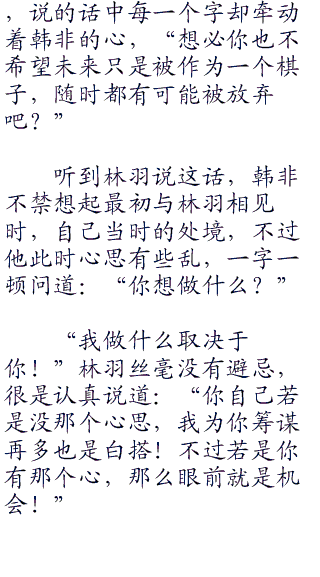 ，说的话中每一个字却牵动
着韩非的心，“想必你也不
希望未来只是被作为一个棋
子，随时都有可能被放弃
吧？”
听到林羽说这话，韩非
不禁想起最初与林羽相见
时，自己当时的处境，不过
他此时心思有些乱，一字一
顿问道：“你想做什么？”
“我做什么取决于
你！”林羽丝毫没有避忌，
很是认真说道：“你自己若
是没那个心思，我为你筹谋
再多也是白搭！不过若是你
有那个心，那么眼前就是机
会！”